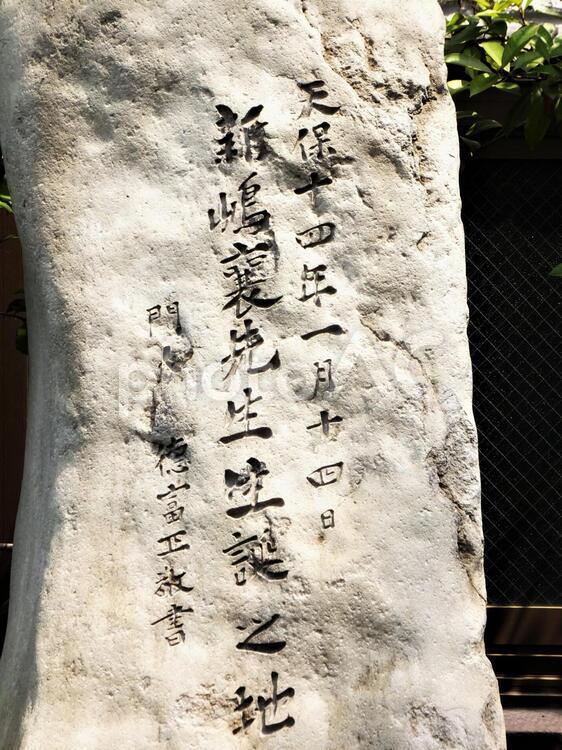 天保十四年一月十四日
新嶋襄先生生誕之地
門人 徳富正敬書
photoAC